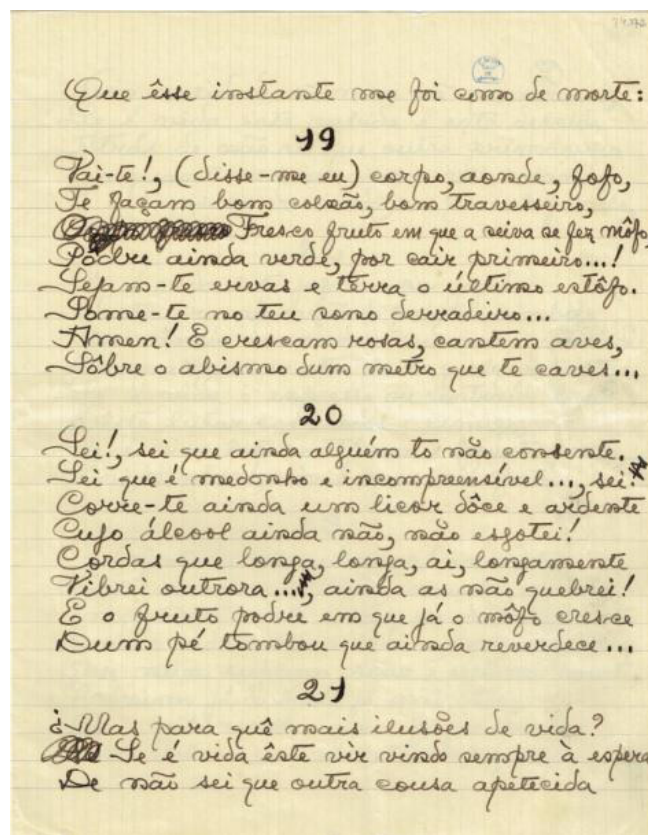 Que êsse instante me foi como de morte:
19
Vai-te!, (disse-me eu) corpo, aonde, fofo,
Te façam bom colxão, bom travesseiro,
Fresco fruto em que a seiva se fez môfo,
Pôdre ainda verde, por cair primeiro...!
Sejam-te ervas e terra o último estôfo.
Some-te no teu sono derradeiro...
Amen! E cresçam rosas, cantem aves,
Sôbre o abismo dum metro que te caves...
20
Sei!, sei que ainda alguém to não consente.
Sei que é medonho e incompreensível..., sei!
Corre-te ainda um licor dôce e ardente
Cujo álcool ainda não, não esgotei!
Cordas que longa, longa, ai, longamente
Vibrei outrora..., ainda as não quebrei!
E o fruto podre em que já o môfo cresce
Dum pé tombou que ainda reverdece...
21
¿Mas para quê mais ilusões de vida?
Se é vida êste vir vindo sempre à espera
De não sei que outra cousa apetecida